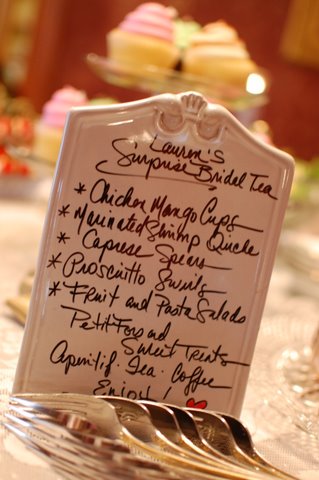 Lauren's
Surprise Bridal Tea
* Chicken Mango Cups
* Marinated Shrimp Quche
* Caprese Spears
* Prosciutto Swirls
* Fruit and Pasta Salads
Petit Fors and
Sweet Treats
Aperitif · Tea · Coffee
Enjoy!